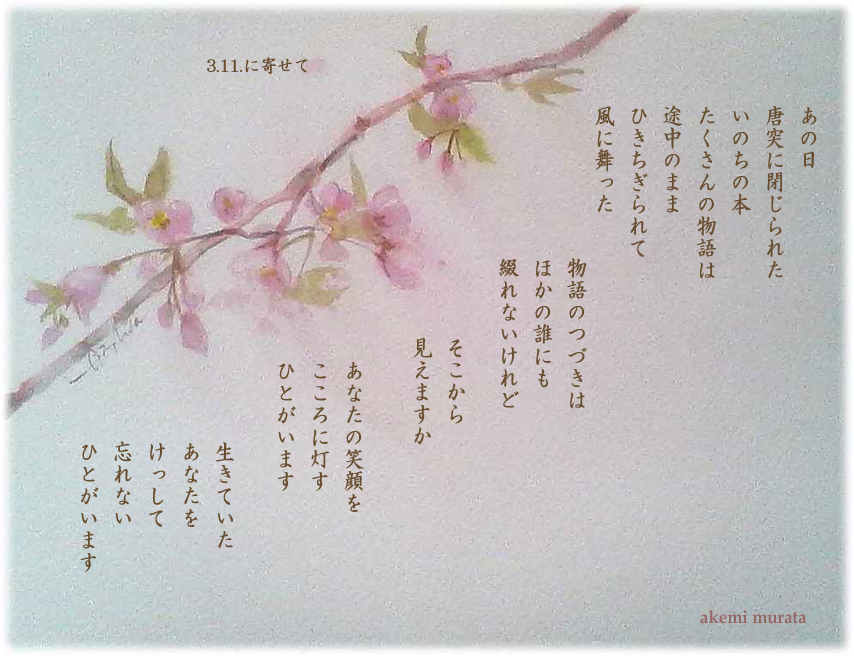 3.11.に寄せて
あの日
唐突に閉じられた
いのちの本
たくさんの物語は
途中のまま
ひきちぎられて
風に舞った
物語のつづきは
ほかの誰にも
綴れないけれど
そこから
見えますか
あなたの笑顔を
こころに灯す
ひとがいます
生きていた
あなたを
けっして
忘れない
ひとがいます
akemi murata